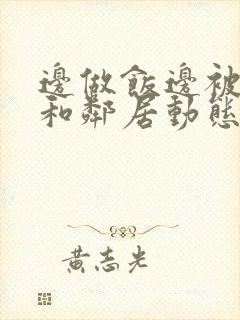 邊做飯邊被
和鄰居動態
黃志光